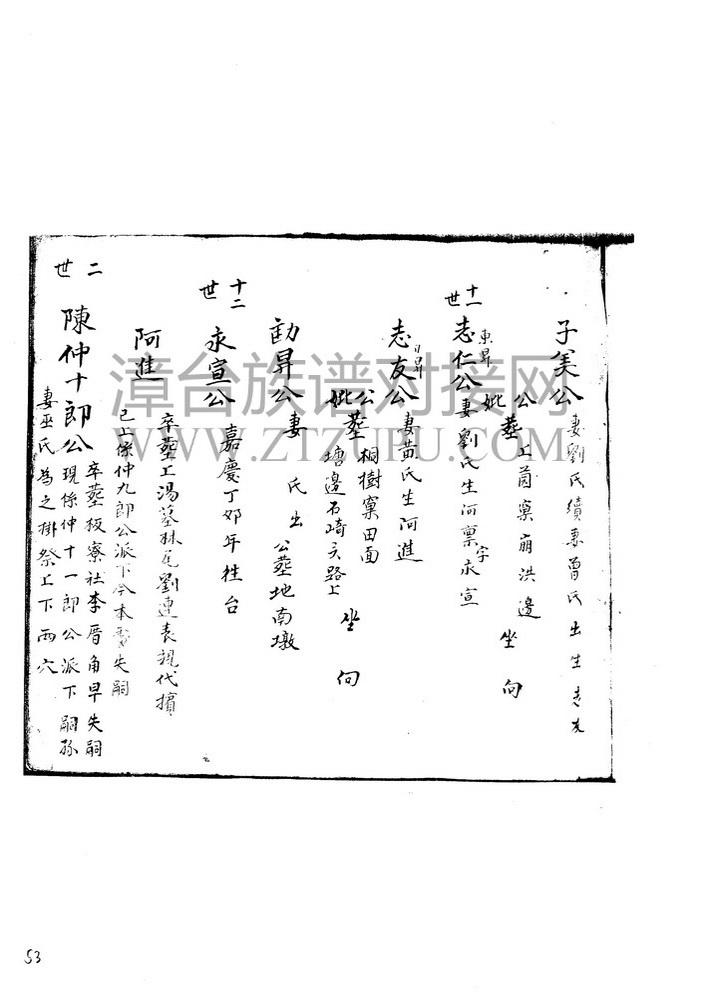 子美公妻劉氏續妻曾氏出生志友
公
妣塟上茵窠崩洪邊 坐 向
十一世
東昇
志仁公妻劉氏生河稟字永宣
日昇
志友公妻黃氏生阿進
公
妣塟桐樹窠田面
塘邊石崎頭路上 坐 向
勸昇公妻 氏出公塟地南墩
十二世
永宣公嘉慶丁卯年往台
阿進
卒塟上湯墓林尾劉連表親代擯
已上係仲九郎公派下今本失嗣
二世
陳仲十郎公卒塟板寮社李厝角早失嗣
現係仲十一郎公派下嗣孫
妻巫氏為之掛祭上下兩穴
漳台族谱对接网
WWW.ZTZUPU.COM
53